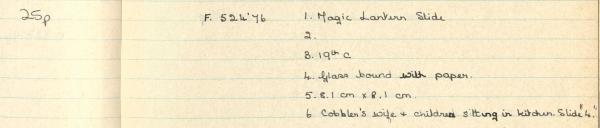 25p F. 524'76 1. Magic Lantern Slide
2.
3. 19th C
4. Glass bound with paper.
5. 8.1 cm x 8.1 cm.
6 Cobbler's wife + children sitting in kitchen. Slide "4."